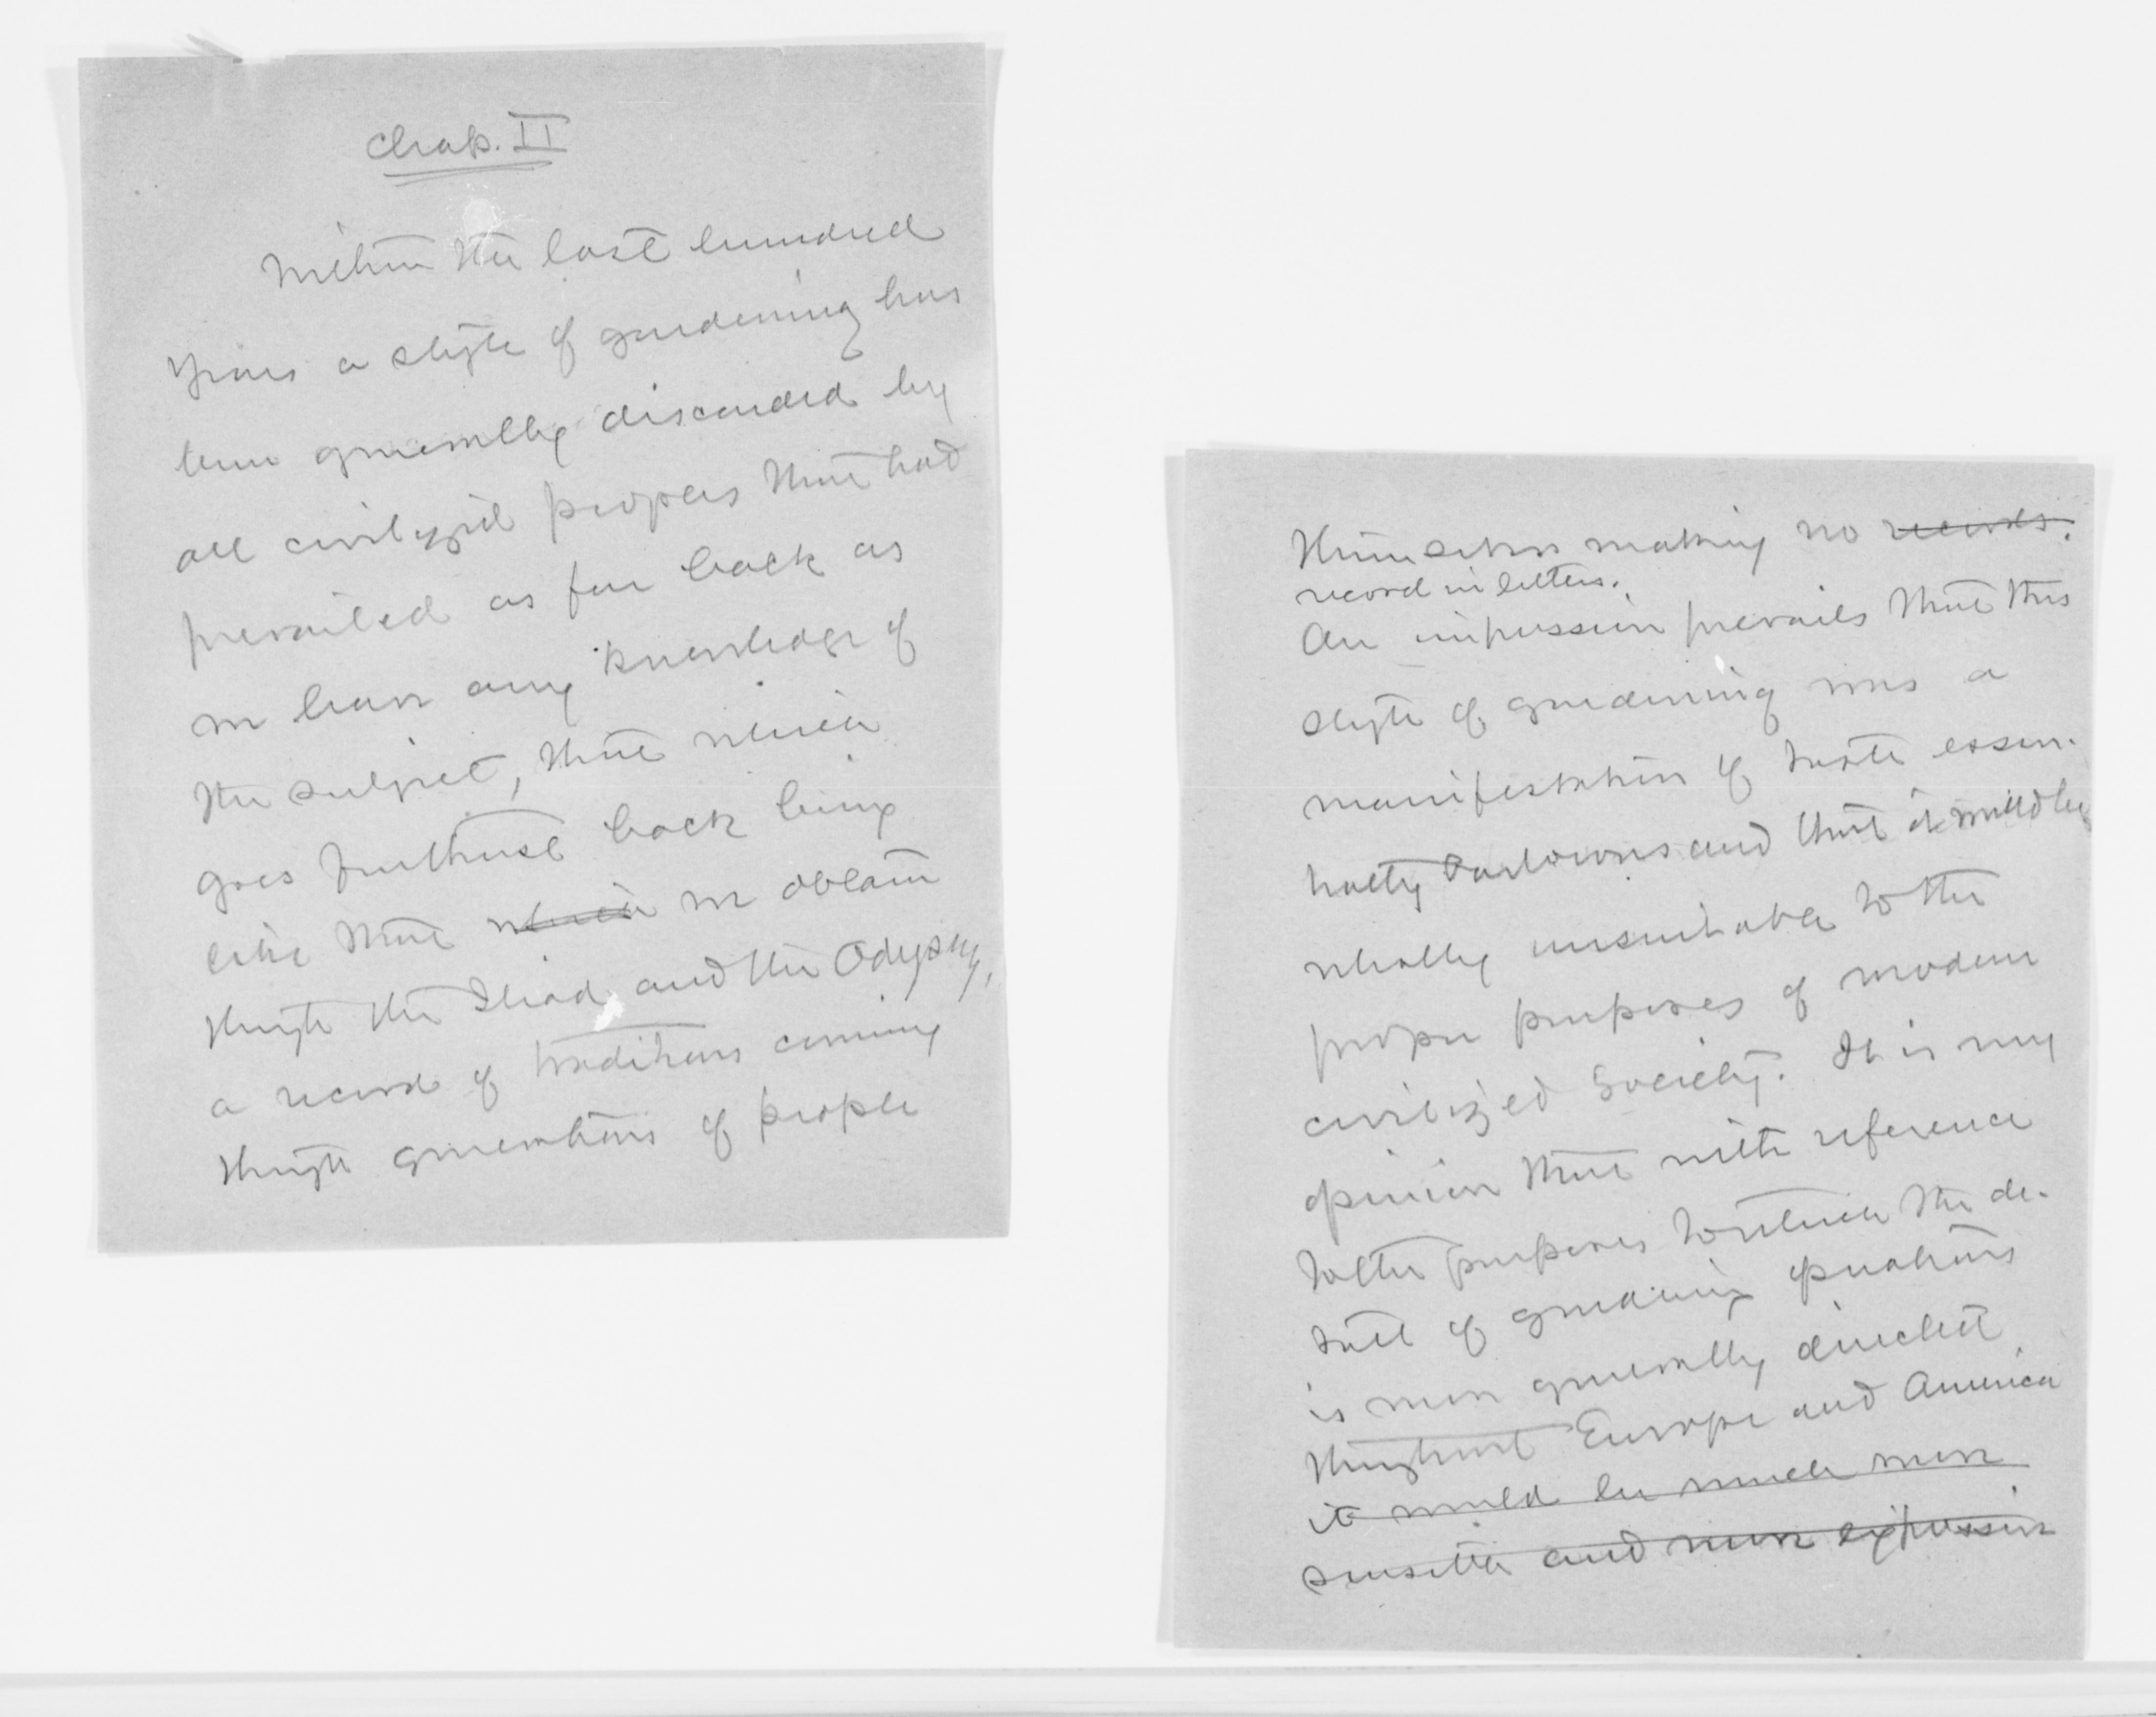 Chap. II
Within the last hundred
years a style of gardening has
been generally discarded by
all civilized peoples that had
prevailed as far back as
we have any knowledge of
the subject, that which
goes furthest back being
like that which we obtain
through the Iliad and the Odyssey,
a record of traditions coming
through generations of people
themselves making no records.
record in letters.
An impression prevails that this
style of gardening was a
manifestation of taste essen-
tially barbarous and that it would be
wholly unsuitable to the
proper purposes of modern
civilized society. It is my
opinion that with reference
to the purposes to which the de-
tail of gardening operations
is now generally directed
throughout Europe and America
it would be much more
sensible and more expressive